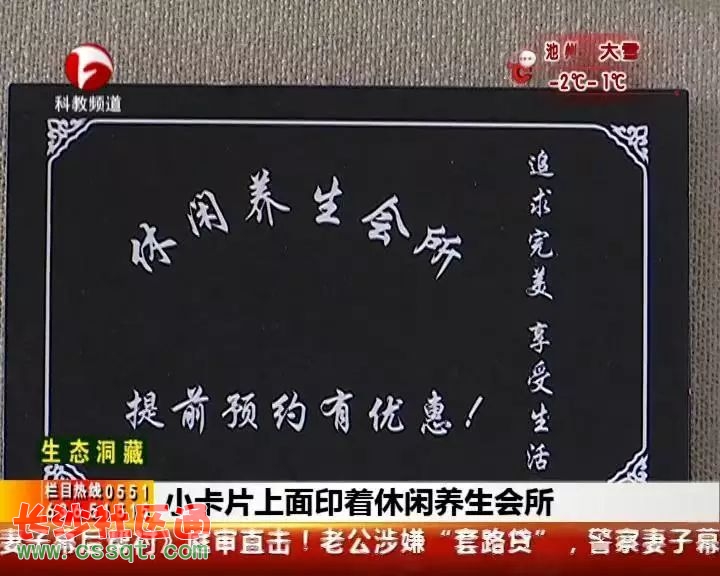 池州 大雪
-2℃-1℃
科教频道
休闲养生会所
追求完美 享受生活
提前预约有优惠!
生态洞藏
栏目热线0551
小卡片上面印着休闲养生会所
长沙社区通
庭审直击!老公涉嫌“套路贷”,警察妻子幕
www.cssqt.com